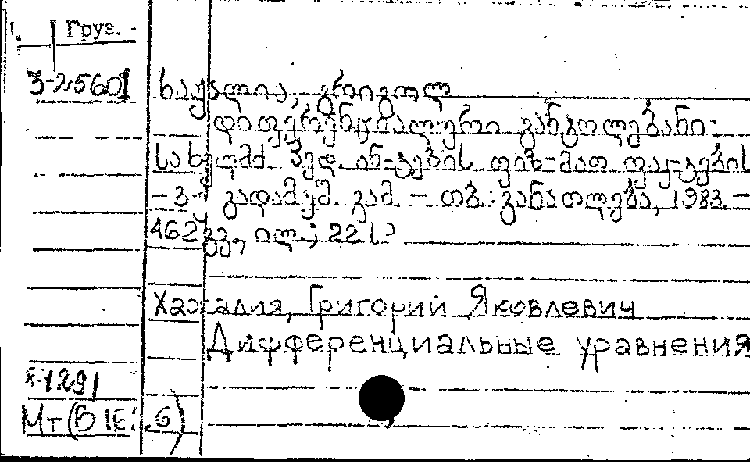 Груз.
3-2560 ხაჟალია, გრიგოლ
დიფერენციალური განტოლებანი:
სახელმძ. პედ. ინ-ტების ფიზ-მათ ფაკ-ტების
- 3-ე გადამუშ. გამ. - თბ.: განათლება, 1983. -
462 გვ., ილ.; 22 სმ
Хажалия, Григорий Яковлевич
Дифференциальные уравнения
1291
Мт(В 1Е: 6)